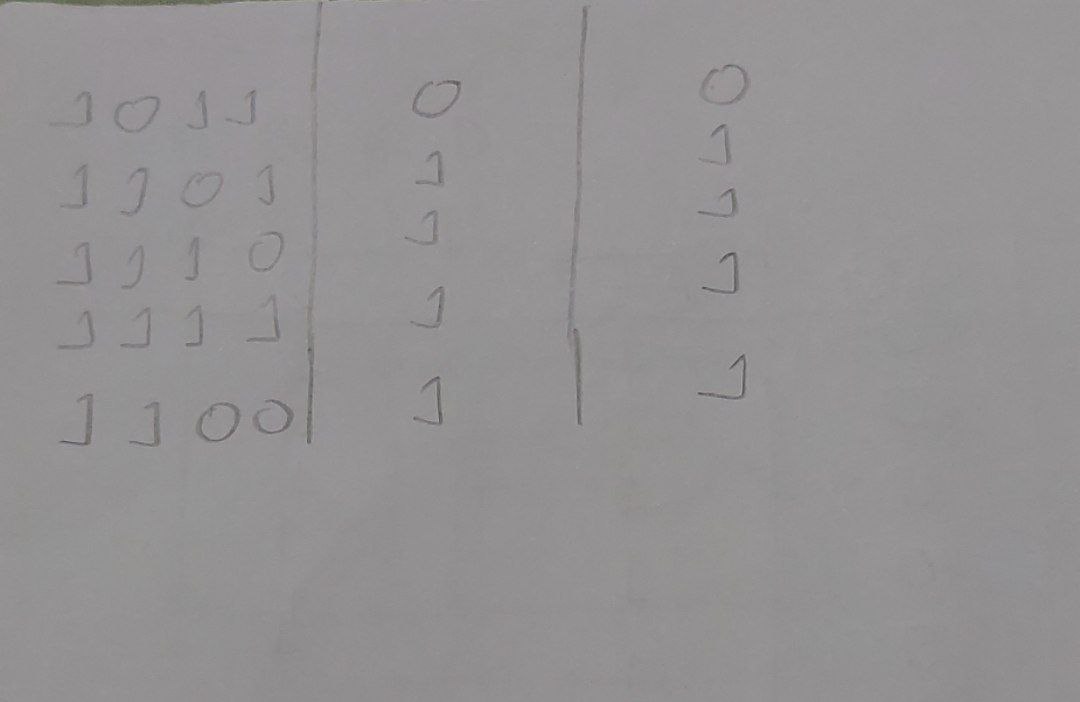 1 0 1 1 | 0 | 0
1 1 0 1 | 1 | 1
1 1 1 0 | 1 | 1
1 1 1 1 | 1 | 1
1 1 0 0 | 1 | 1